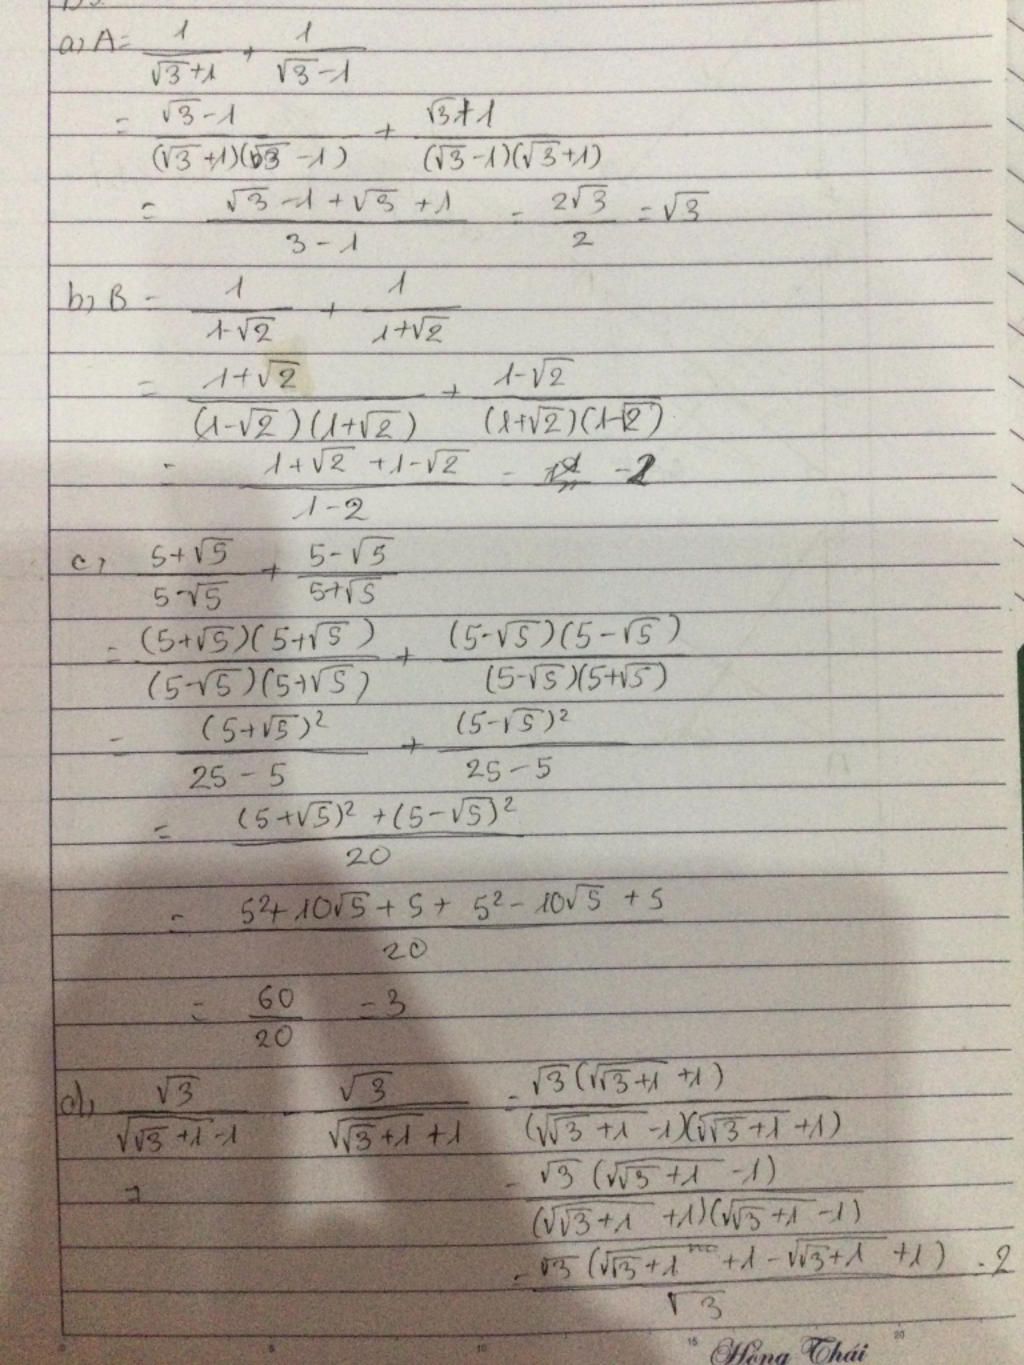 a, A = 1/(√3+1) + 1/(√3-1)
= (√3-1)/((√3+1)(√3-1)) + (√3+1)/((√3-1)(√3+1))
= (√3-1+√3+1)/(3-1) = 2√3/2 = √3
b, B = 1/(1-√2) + 1/(1+√2)
= (1+√2)/((1-√2)(1+√2)) + (1-√2)/((1+√2)(1-√2))
= (1+√2+1-√2)/(1-2) = -2
c, (5+√5)/(5-√5) + (5-√5)/(5+√5)
= ((5+√5)(5+√5))/((5-√5)(5+√5)) + ((5-√5)(5-√5))/((5-√5)(5+√5))
= (5+√5)²/(25-5) + (5-√5)²/(25-5)
= ((5+√5)²+(5-√5)²)/20
= (5²+10√5+5+5²-10√5+5)/20
= 60/20 = 3
d, √3/(√(√3+1)-1) - √3/(√(√3+1)+1) = √3(√(√3+1)+1)/((√(√3+1)-1)(√(√3+1)+1))
= - √3(√(√3+1)-1)/((√(√3+1)+1)(√(√3+1)-1))
= √3(√(√3+1)+1-√(√3+1)+1)/√3 = 2
5 10 15 20
Hồng Thái